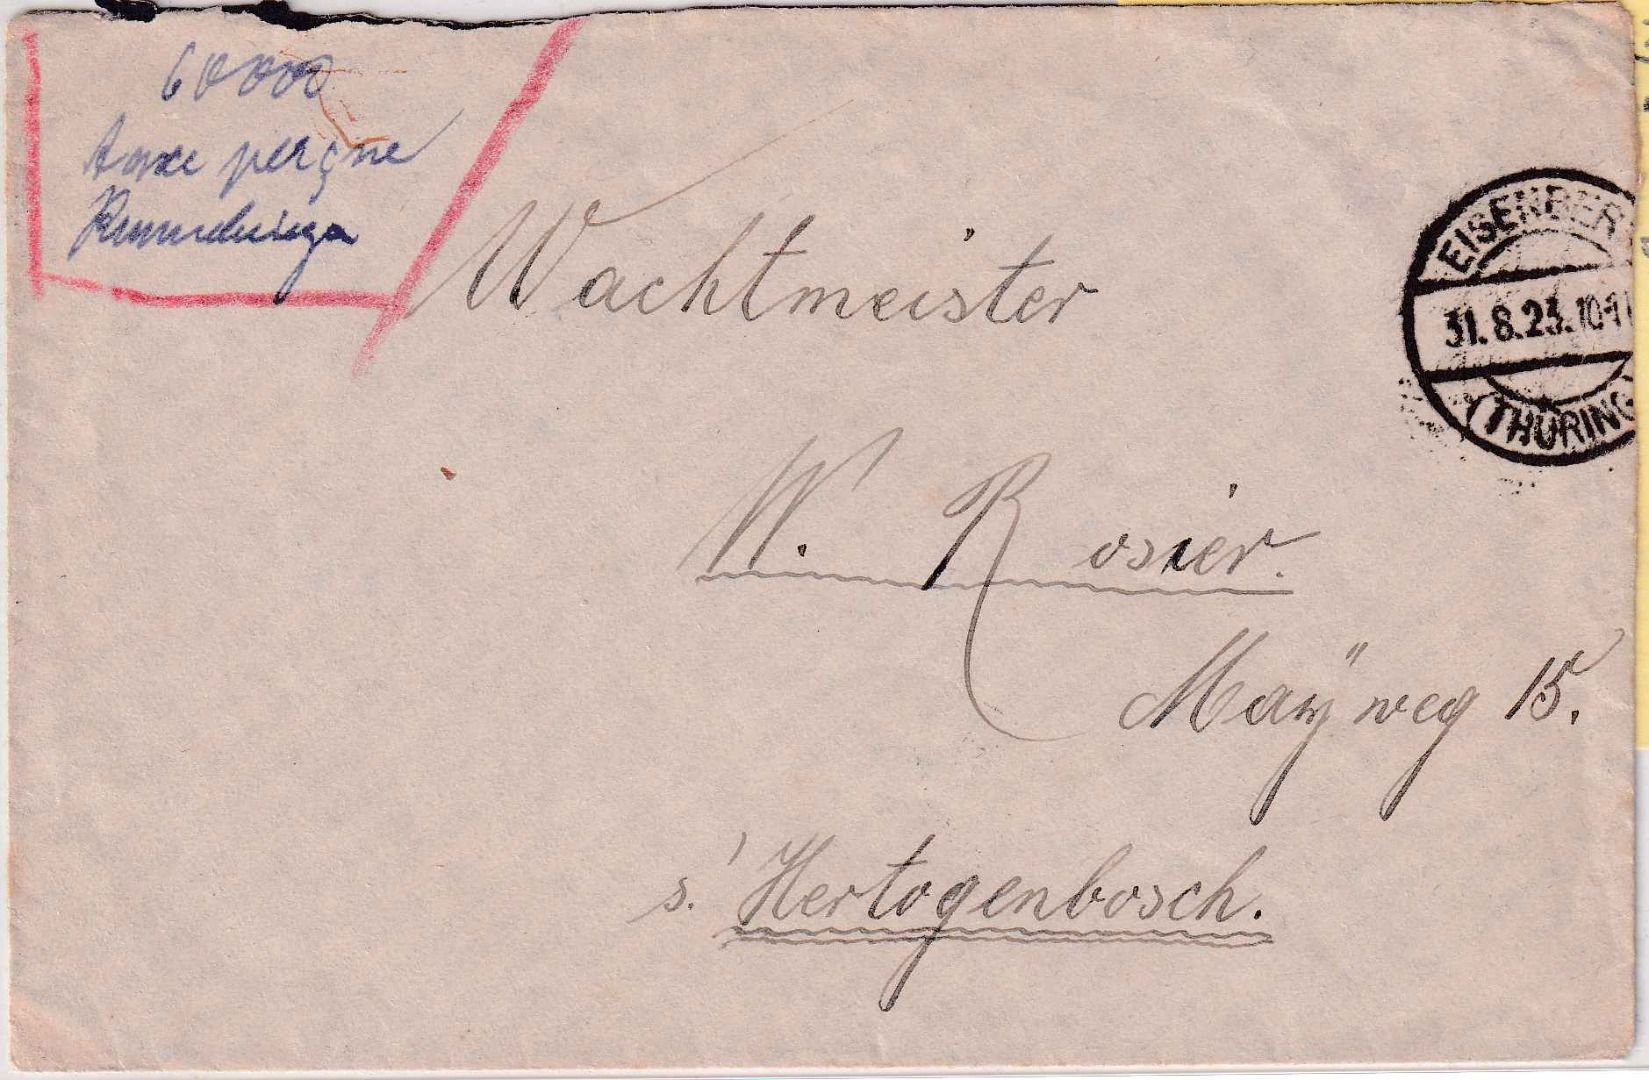 60000
taxe perçue
EISENBER
31.8.23.10-11
(THÜRING)
Wachtmeister
W. Rosier.
Maÿweg 15.
s' Hertogenbosch.